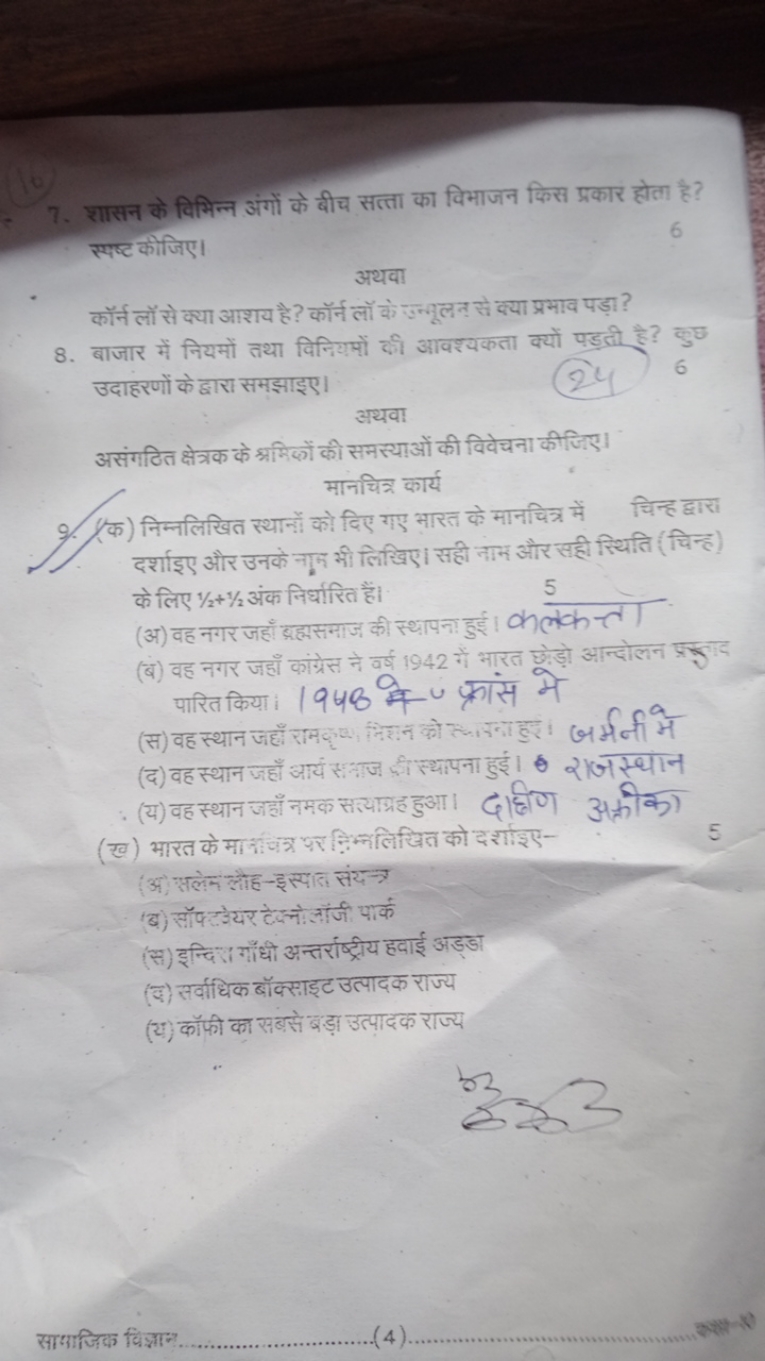 16
7. शासन के विभिन्न अंगों के बीच सत्ता का विभाजन किस प्रकार होता है?
स्पष्ट कीजिए। 6
अथवा
कॉर्न लॉ से क्या आशय है? कॉर्न लॉ के उन्मूलन से क्या प्रभाव पड़ा?
8. बाजार में नियमों तथा विनियमों की आवश्यकता क्यों पड़ती है? कुछ
उदाहरणों के द्वारा समझाइए। 24 6
अथवा
असंगठित क्षेत्रक के श्रमिकों की समस्याओं की विवेचना कीजिए।
मानचित्र कार्य
9. (क) निम्नलिखित स्थानों को दिए गए भारत के मानचित्र में चिन्ह द्वारा
दर्शाइए और उनके नाम भी लिखिए। सही नाम और सही स्थिति (चिन्ह)
के लिए ½+½ अंक निर्धारित हैं। 5
(अ) वह नगर जहाँ ब्रह्मसमाज की स्थापना हुई। कलकत्ता
(ब) वह नगर जहाँ कांग्रेस ने वर्ष 1942 में भारत छोड़ो आन्दोलन प्रस्ताव
पारित किया। 1948 में फ्रांस मे
(स) वह स्थान जहाँ रामकृष्ण मिशन की स्थापना हुई। जर्मनी मे
(द) वह स्थान जहाँ आर्य समाज की स्थापना हुई। राजस्थान
(य) वह स्थान जहाँ नमक सत्याग्रह हुआ। अफ्रीका
(ख) भारत के मानचित्र पर निम्नलिखित को दर्शाइए- 5
(अ) सलेम लौह-इस्पात संयन्त्र
(ब) सॉफ्टवेयर टेक्नोलॉजी पार्क
(स) इन्दिरा गाँधी अन्तर्राष्ट्रीय हवाई अड्डा
(द) सर्वाधिक बॉक्साइट उत्पादक राज्य
(य) कॉफी का सबसे बड़ा उत्पादक राज्य
सामाजिक विज्ञान..............................(4)..............................